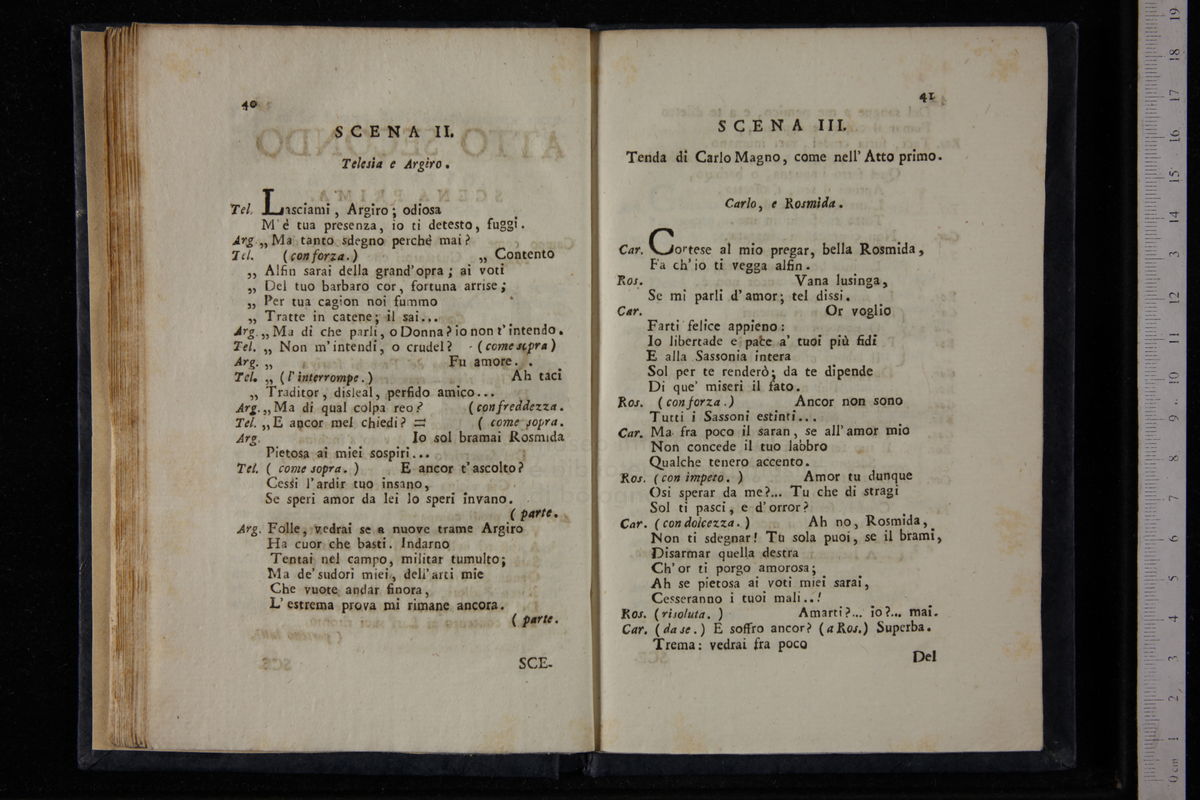 40
SCENA II.
Telesia e Argiro.
Tel. Lasciami, Argiro; odiosa
M'è tua presenza, io ti detesto, fuggi.
Arg. „ Ma tanto sdegno perchè mai?
Tel. (con forza.) „ Contento
„ Alfin sarai della grand'opra; ai voti
„ Del tuo barbaro cor, fortuna arrise;
„ Per tua cagion noi fummo
„ Tratte in catene; il sai...
Arg. „ Ma di che parli, o Donna? io non t'intendo.
Tel. „ Non m'intendi, o crudel? (come sopra)
Arg. „ Fu amore. .
Tel. „ (l'interrompe.) Ah taci
„ Traditor, disleal, perfido amico...
Arg. „ Ma di qual colpa reo? (con freddezza.
Tel. „ E ancor mel chiedi? = (come sopra.
Arg. Io sol bramai Rosmida
Pietosa ai miei sospiri...
Tel. (come sopra.) E ancor t'ascolto?
Cessi l'ardir tuo insano,
Se speri amor da lei lo speri invano.
(parte.
Arg. Folle, vedrai se a nuove trame Argiro
Ha cuor che basti. Indarno
Tentai nel campo, militar tumulto;
Ma de' sudori miei, dell'arti mie
Che vuote andar finora,
L'estrema prova mi rimane ancora.
(parte.
SCE-
41
SCENA III.
Tenda di Carlo Magno, come nell'Atto primo.
Carlo, e Rosmida.
Car. Cortese al mio pregar, bella Rosmida,
Fa ch'io ti vegga alfin.
Ros. Vana lusinga,
Se mi parli d'amor; tel dissi.
Car. Or voglio
Farti felice appieno:
Io libertade e pace a' tuoi più fidi
E alla Sassonia intera
Sol per te renderò; da te dipende
Di que' miseri il fato.
Ros. (con forza.) Ancor non sono
Tutti i Sassoni estinti...
Car. Ma fra poco il saran, se all'amor mio
Non concede il tuo labbro
Qualche tenero accento.
Ros. (con impeto.) Amor tu dunque
Osi sperar da me?... Tu che di stragi
Sol ti pasci, e d'orror?
Car. (con dolcezza.) Ah no, Rosmida,
Non ti sdegnar! Tu sola puoi, se il brami,
Disarmar quella destra
Ch'or ti porgo amorosa;
Ah se pietosa ai voti miei sarai,
Cesseranno i tuoi mali..!
Ros. (risoluta.) Amarti?... io?... mai.
Car. (da se.) E soffro ancor? (a Ros.) Superba.
Trema: vedrai fra poco
Del